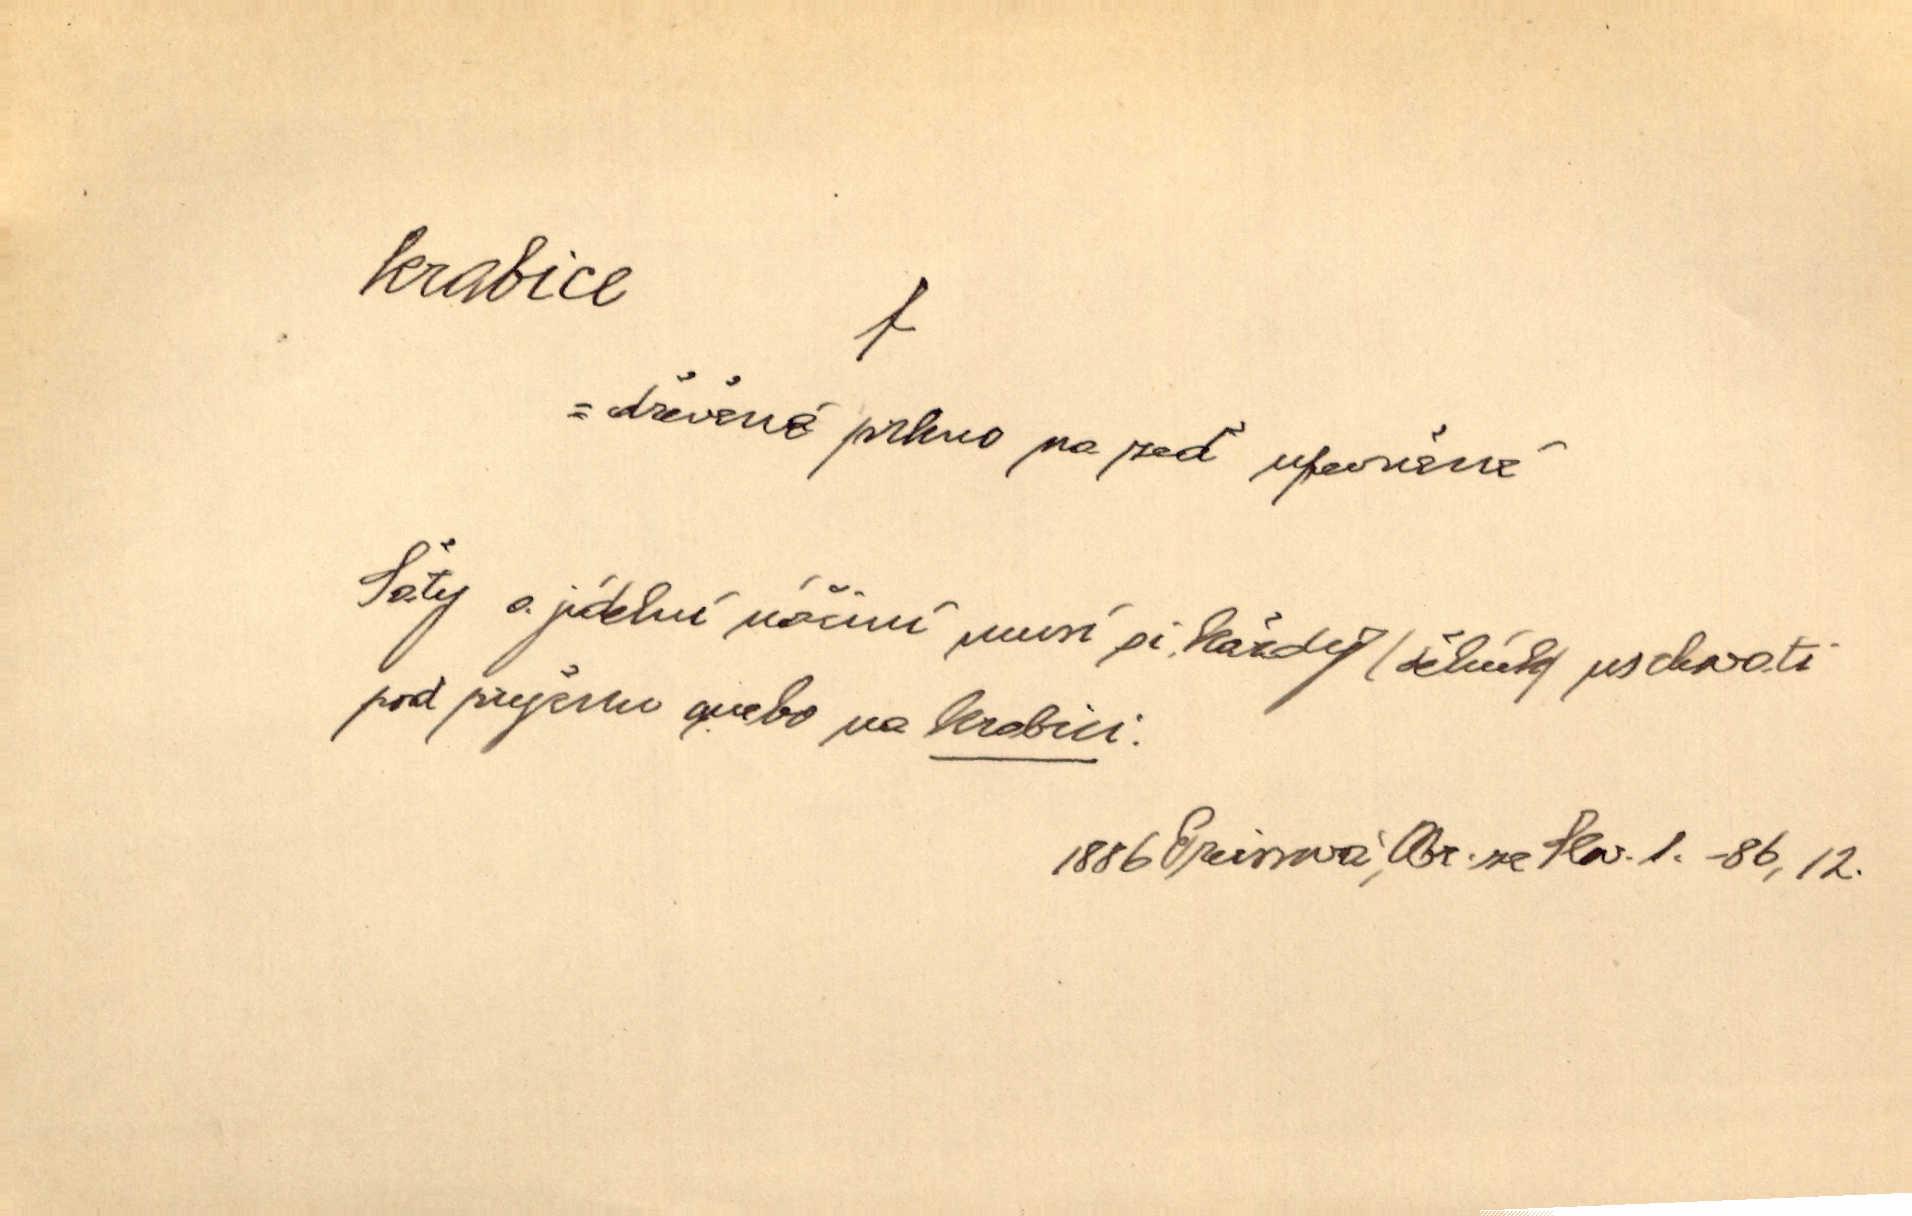 krabice
f
= dřevěné prkno na zeď upevněné
Šaty a jídelní náčiní musí si každý (dělník) uschovati
pod pryčnu anebo na krabici.
1886 Preissová, Obr. ze Slov. 1. -86, 12.